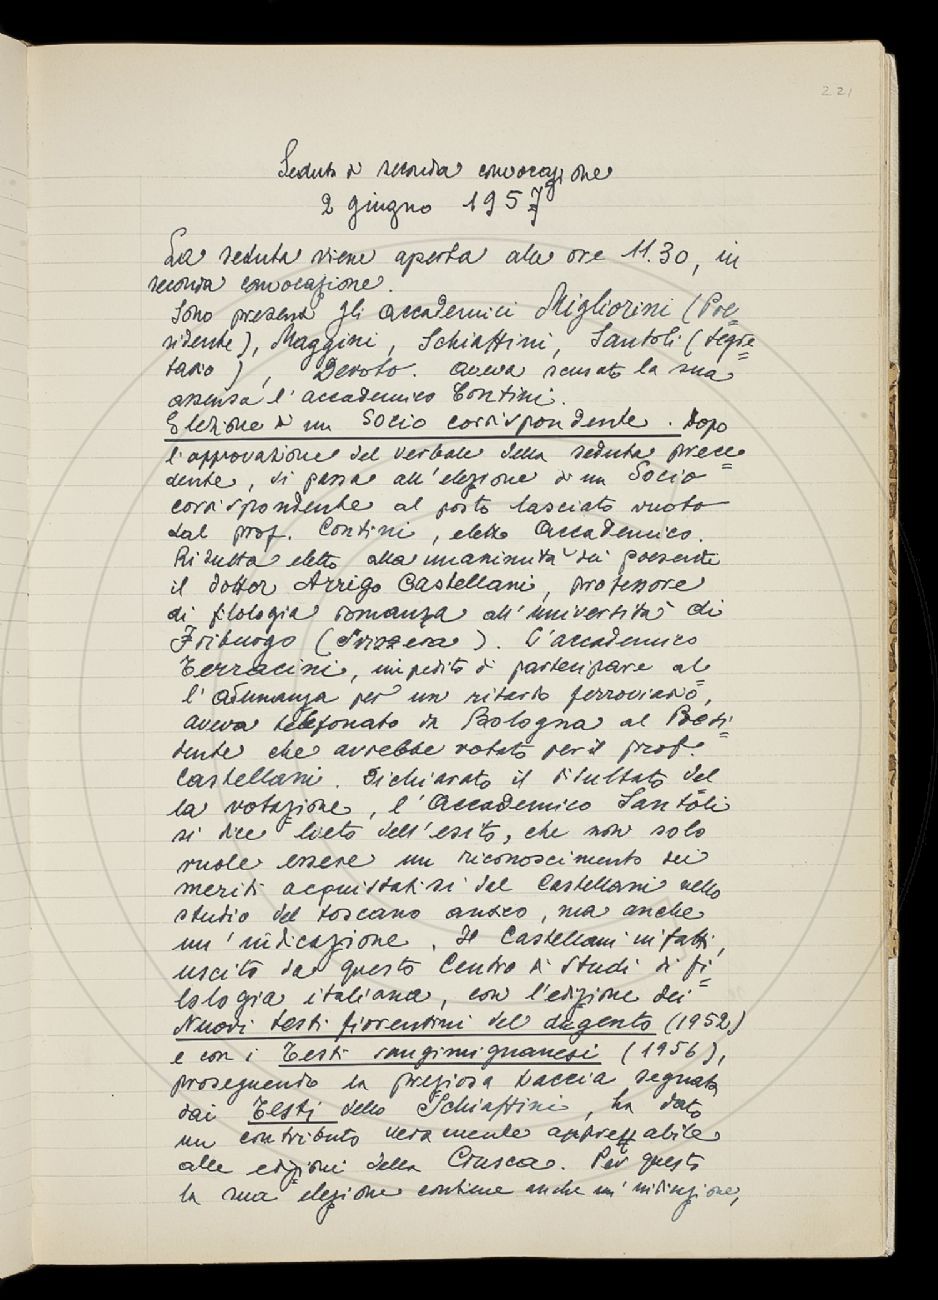 221
Seduta di seconda convocazione
2 giugno 1957
La seduta viene aperta alle ore 11.30, in
seconda convocazione.
Sono presenti gli accademici Migliorini (Pre=
sidente), Maggini, Schiaffini, Santoli (segre=
tario), Devoto. Aveva scusato la sua
assenza l'accademico Contini.
Elezione di un Socio corrispondente. Dopo
l'approvazione del verbale della seduta prece=
dente, si passa all'elezione di un Socio
corrispondente al posto lasciato vuoto
dal prof. Contini, eletto Accademico.
Risulta eletto alla unanimità dei presenti
il dottor Arrigo Castellani, professore
di filologia romanza all'università di
Friburgo (Svizzera). L'accademico
Terracini, impedito di partecipare al=
l'adunanza per un ritardo ferroviario,
aveva telefonato da Bologna al Presi=
dente che avrebbe votato per il prof.
Castellani. Dichiarato il risultato del
la votazione, l'Accademico Santòli
si dice lieto dell'esito, che non solo
vuole essere un riconoscimento dei
meriti acquistatisi dal Castellani nello
studio del toscano antico, ma anche
un'indicazione. Il Castellani infatti,
uscito da questo Centro di studi di fi=
lologia italiana, con l'edizione dei
Nuovi testi fiorentini del dugento (1952)
e con i Testi sangimignanesi (1956),
proseguendo la preziosa traccia segnata
dai Testi dello Schiaffini, ha dato
un contributo veramente apprezzabile
alle edizioni della Crusca. Per questo
la sua elezione contiene anche un'indicazione,